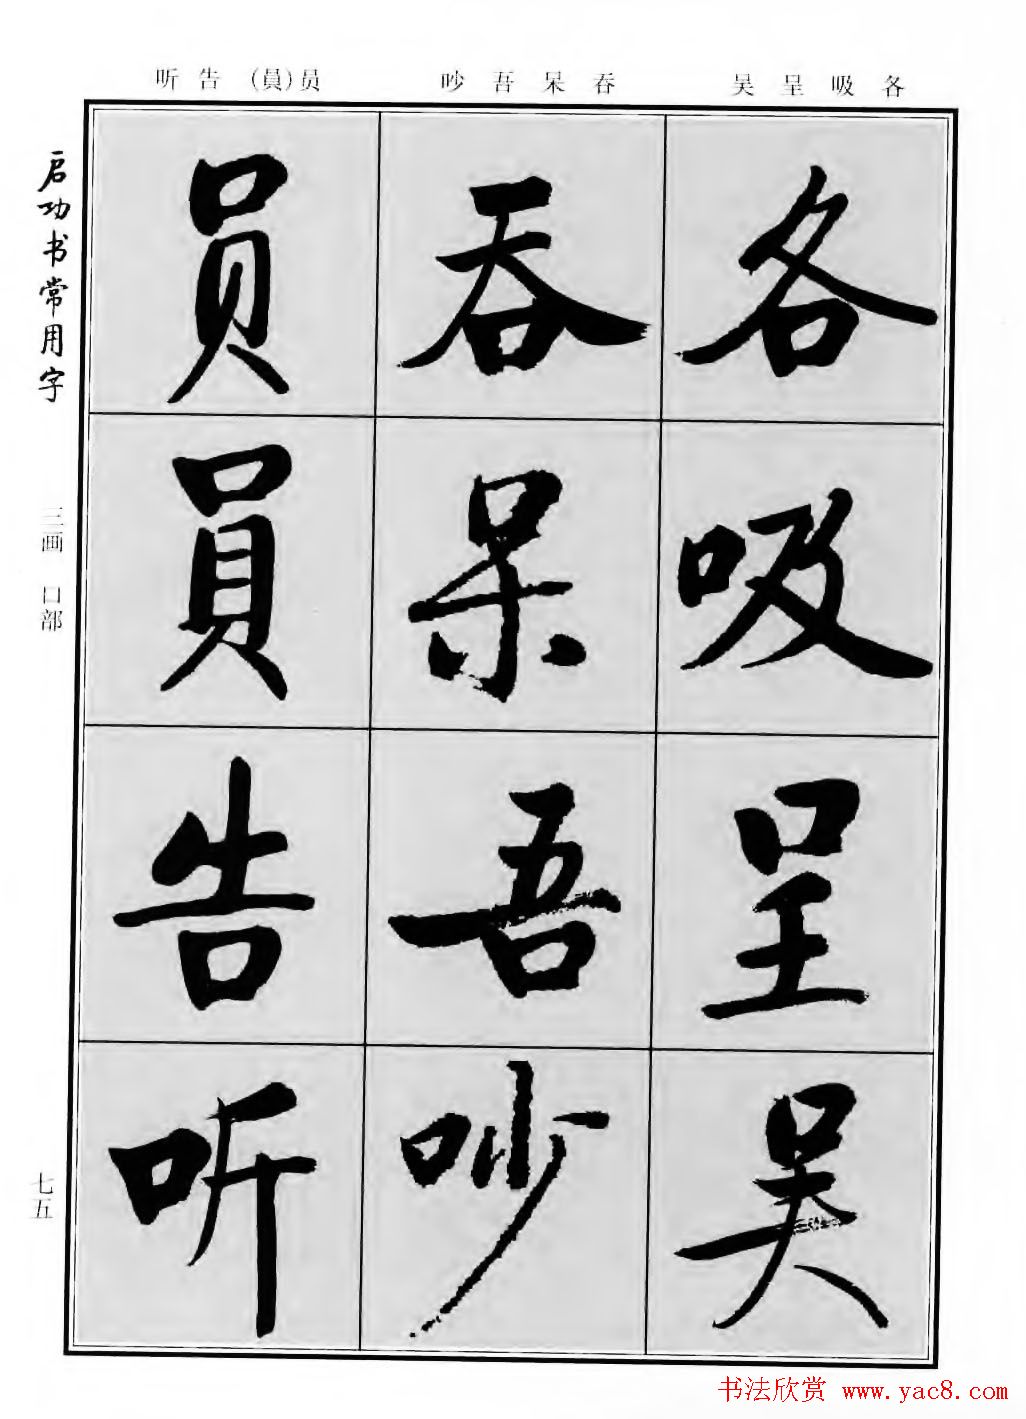 听告(員)员 吵吾呆吞 吴呈吸各
启功书常用字
三画 口部
七五
各吸呈吴
吞呆吾吵
员員告听
书法欣赏 www.yac8.com